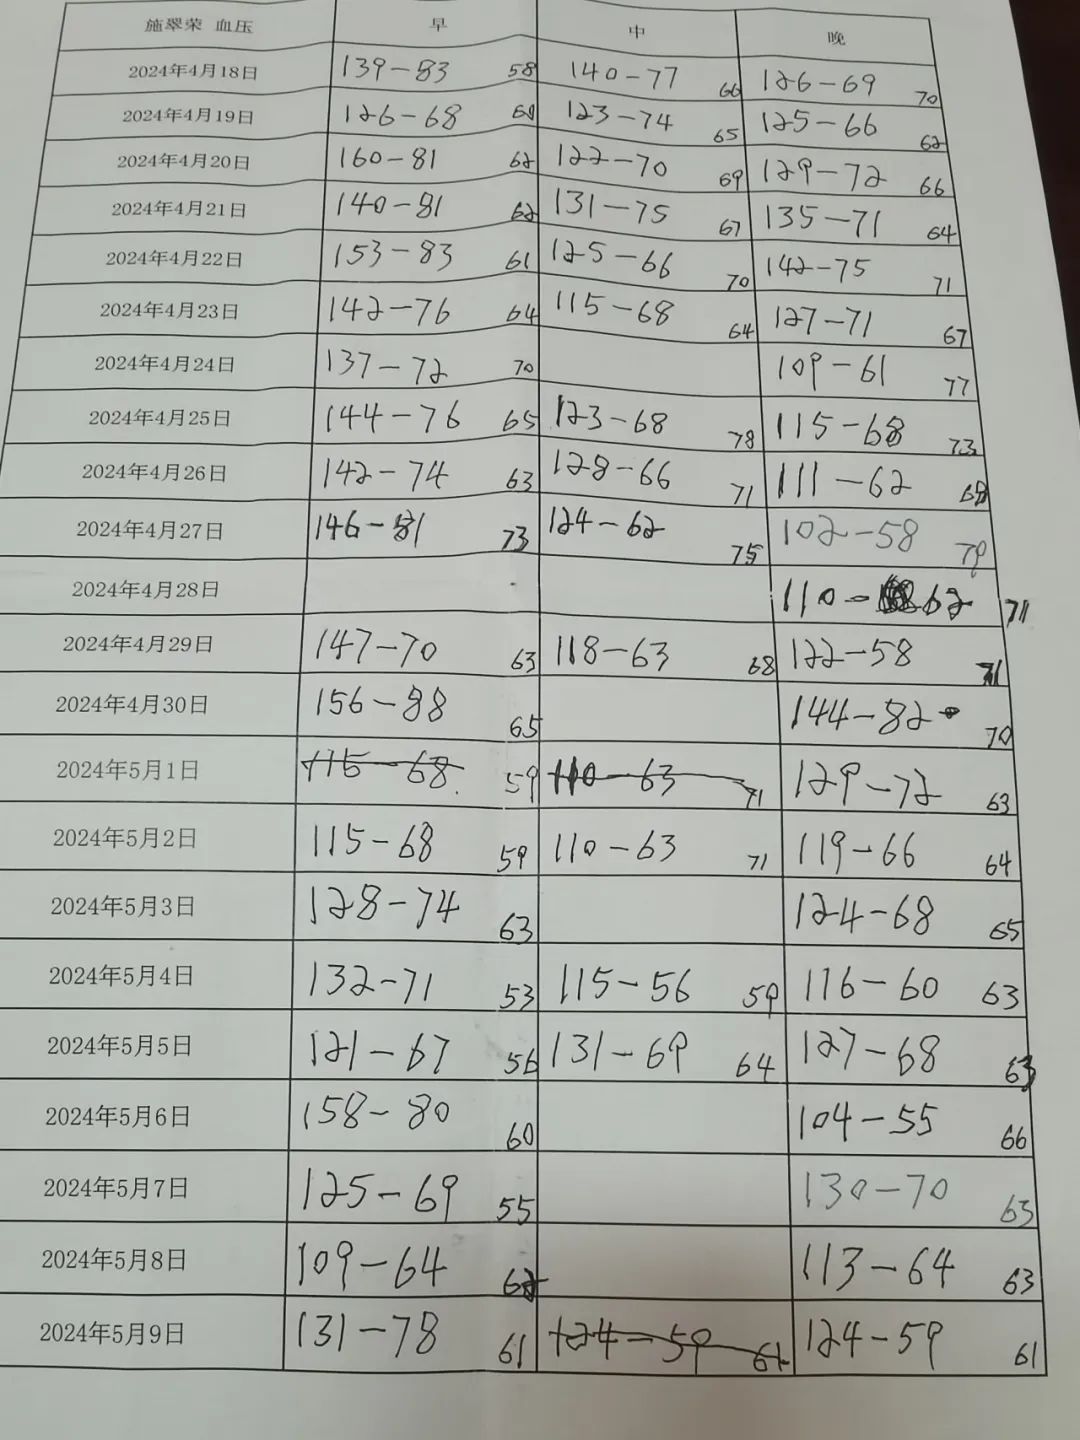 施翠荣 血压 早 中 晚
2024年4月18日 139-83 58 140-77 66 126-69 70
2024年4月19日 126-68 60 123-74 65 125-66 62
2024年4月20日 160-81 62 122-70 69 129-72 66
2024年4月21日 140-81 62 131-75 67 135-71 64
2024年4月22日 153-83 61 125-66 70 142-75 71
2024年4月23日 142-76 64 115-68 64 127-71 67
2024年4月24日 137-72 70 109-61 77
2024年4月25日 144-76 65 123-68 78 115-68 73
2024年4月26日 142-74 63 128-66 71 111-62 68
2024年4月27日 146-81 73 124-62 75 102-58 79
2024年4月28日 110-62 71
2024年4月29日 147-70 63 118-63 68 122-58 71
2024年4月30日 156-88 65 144-82 70
2024年5月1日 115-68 59 110-63 71 129-72 63
2024年5月2日 115-68 59 110-63 71 119-66 64
2024年5月3日 128-74 63 124-68 65
2024年5月4日 132-71 53 115-56 59 116-60 63
2024年5月5日 121-67 56 131-69 64 127-68 63
2024年5月6日 158-80 60 104-55 66
2024年5月7日 125-69 55 130-70 63
2024年5月8日 109-64 62 113-64 63
2024年5月9日 131-78 61 124-59 61 124-59 61